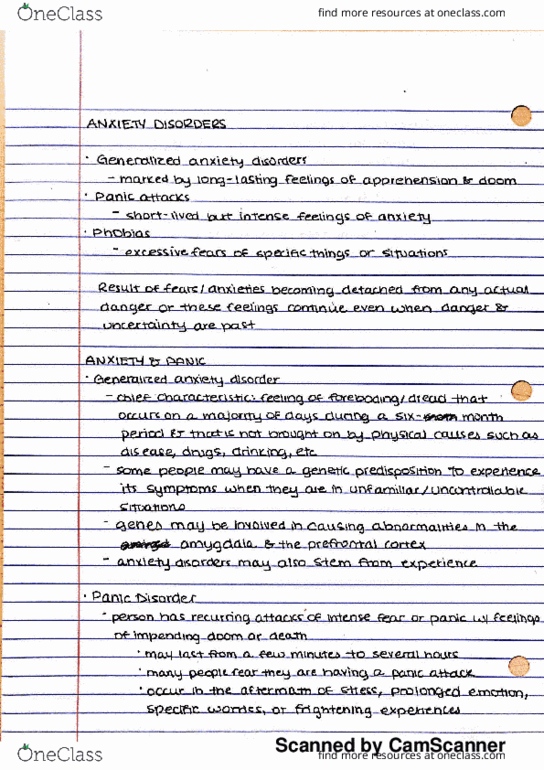 OneClass
find more resources at oneclass.com
ANXIETY DISORDERS
· Generalized anxiety disorders
- marked by long-lasting feelings of apprehension & doom
· Panic attacks
- short-lived but intense feelings of anxiety
· Phobias
- excessive fears of specific things or situations
Result of fears/anxieties becoming detached from any actual
danger or these feelings continue even when danger &
uncertainty are past
ANXIETY & PANIC
· Generalized anxiety disorder
- chief characteristic: feeling of foreboding/dread that
occurs on a majority of days during a six- month
period & that is not brought on by physical causes such as
disease, drugs, drinking, etc
- some people may have a genetic predisposition to experience
its symptoms when they are in unfamiliar/uncontrollable
situations
- genes may be involved in causing abnormalities in the
amygdala & the prefrontal cortex
- anxiety disorders may also stem from experience
· Panic Disorder
- person has recurring attacks of intense fear or panic w/ feelings
of impending doom or death
· may last from a few minutes to several hours
· many people fear they are having a panic attack
· occur in the aftermath of stress, prolonged emotion,
specific worries, or frightening experiences
Scanned by CamScanner
OneClass
find more resources at oneclass.com